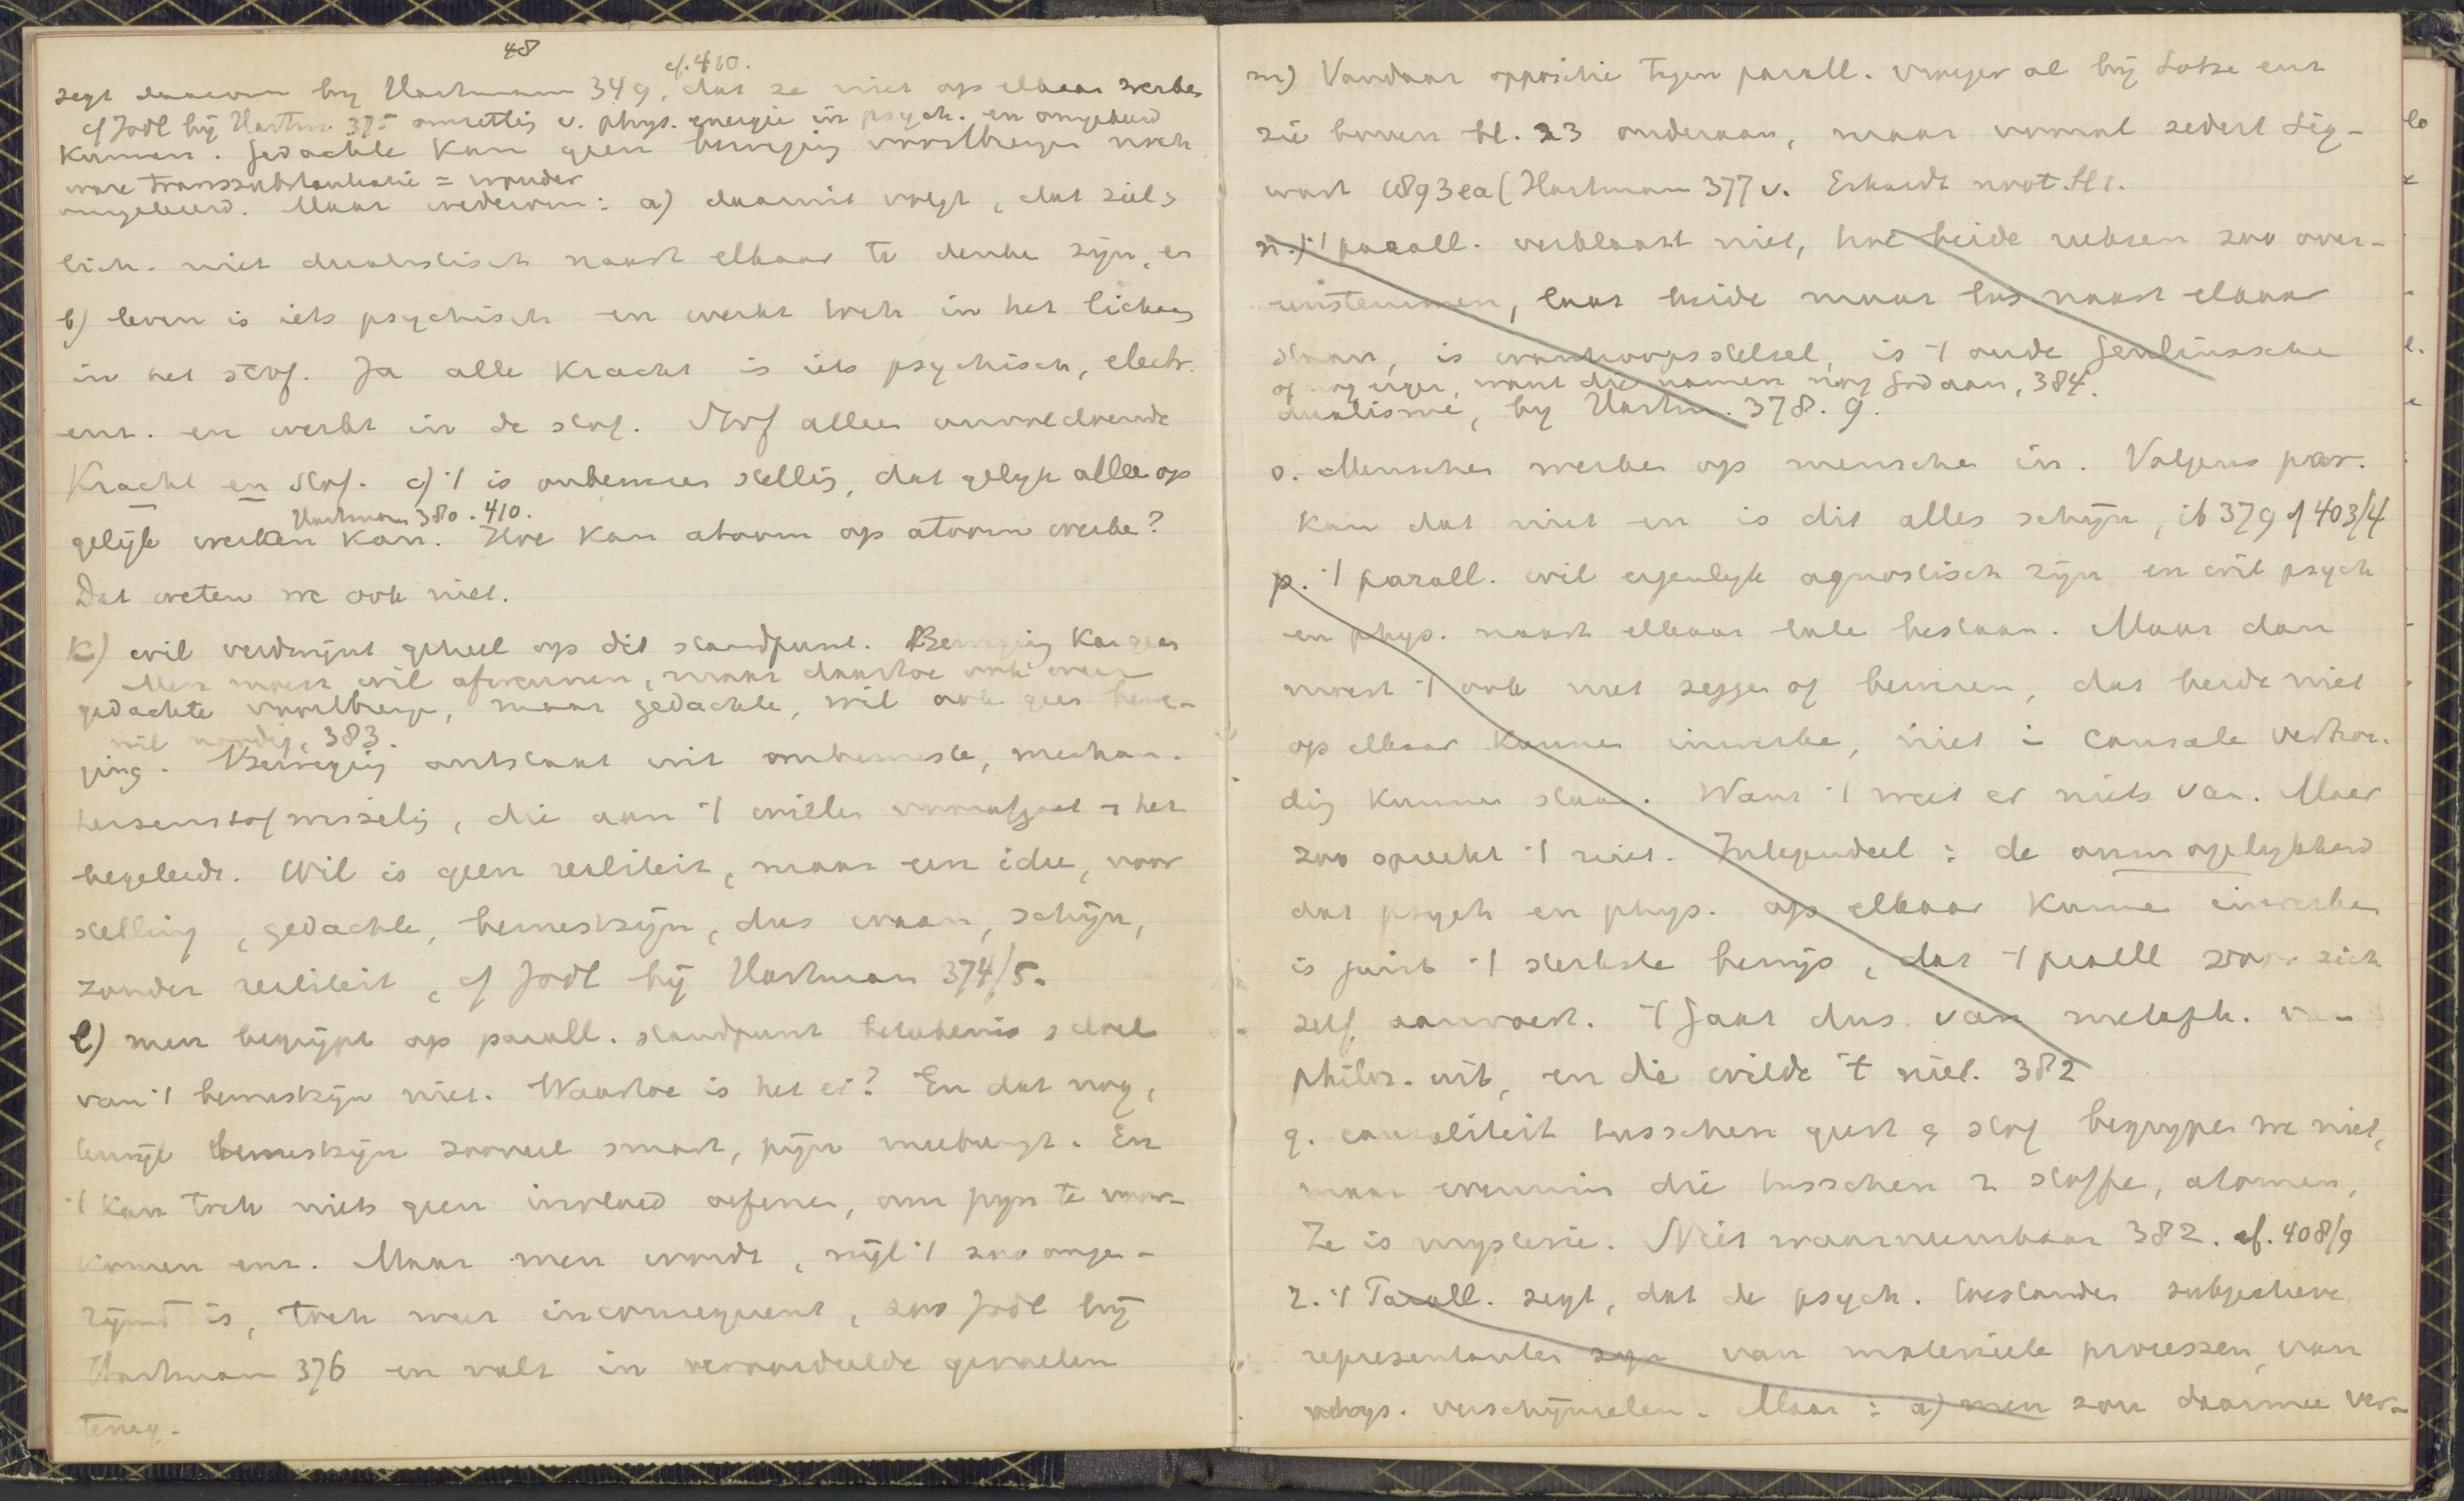 48
cf. 410.
zegt daarom bij Hartmann 349, dat ze niet op elkaar werke
cf Jodl bij Hartm. 375 omzettig v. phys. energie in psych. en omgekeerd
kunnen. Gedachte kan geen beweging voortbrengen noch
ware transsubstantiatie = wonder
omgekeerd. Maar wederom: a) daaruit volgt, dat ziel &
lich. niet dualistisch naast elkaar te denke zijn, en
b) leven is iets psychisch en werkt toch in het lichaam
in het stof. Ja alle kracht is iets psychisch, electr.
enz. en werkt in de stof. Stof alleen onvoldoende
Kracht en stof. c) 't is onbewezen stellig, dat gelijk alleen op
Hartmann 380. 410.
gelijk werken kan. Hoe kan atoom op atoom werke?
Dat weten we ook niet.
k) wil verdwijnt geheel op dit standpunt. Beweging kan geen
Men moest wil afwennen, maar daartoe ook weer
gedachte voortbrenge, maar gedachte, wil ook geen bewe-
wil noodig, 383.
ging. Beweging ontstaat uit onbewuste, mechan.
hersenstofwisselig, die aan 't willen voorafgaat & het
begeleidt. Wil is geen realiteit, maar een idee, voor
stelling, gedachte, bewustzijn, dus waan, schijn,
zonder realiteit, cf Jodl bij Hartman 374/5.
l) men begrijpt op parall. standpunt beteekenis & doel
van 't bewustzijn niet. Waartoe is het er? En dat nog,
terwijl bewustzijn zooveel smart, pijn meebrengt. En
't kan toch niets geen invloed oefenen, om pijn te voor-
komen enz. Maar men wordt, wijl 't zoo onge-
rijmd is, toch weer inconsequent, zoo Jodl bij
Hartman 376 en valt in veroordeelde gevoelen
terug.
m) Vandaar oppositie tegen parall. vroeger al bij Lotze enz
zie boven bl. 23 onderaan, maar vooral sedert Sig-
wart 1893 ea (Hartman 377 v. Erhardt noot bl 1.
n.) 't parall. verklaart niet, hoe beide reeksen zoo over-
eenstemmen, laat beide maar los naast elkaar
staan, is wanhoopsstelsel, is 't oude Geulinxsche
of nog erger, want die namen nog God aan, 384.
dualisme, bij Hartm. 378. 9.
o. Menschen werke op mensche in. Volgens par.
kan dat niet en is dit alles schijn, ib 379 cf 403/4
p. 't parall. wil eigenlijk agnostisch zijn en wil psych
en phys. naast elkaar late bestaan. Maar dan
moest 't ook niet zegge of beweren, dat beide niet
op elkaar kunne inwerke, niet in causale verhou-
dig kunnen staan. Want 't weet er niets van. Maar
zoo spreekt 't niet. Integendeel: de onmogelijkheid
dat psych en phys. op elkaar kunne inwerken
is juist 't sterkste bewijs, dat 't parall voor zich
zelf aanvoert. 't Gaat dus van metaph. v.
philos. uit, en die wilde 't niet. 382
q. causaliteit tusschen geest & stof begrijpen we niet,
maar evenmin die tusschen 2 stoffe, atomen,
Ze is mysterie. Niet waarneembaar 382. cf. 408/9
r. 't Parall. zegt, dat de psych. toestanden subjectieve
representanten zijn van materieele processen, van
phys. verschijnselen. Maar: a) men zou daarmee ver-